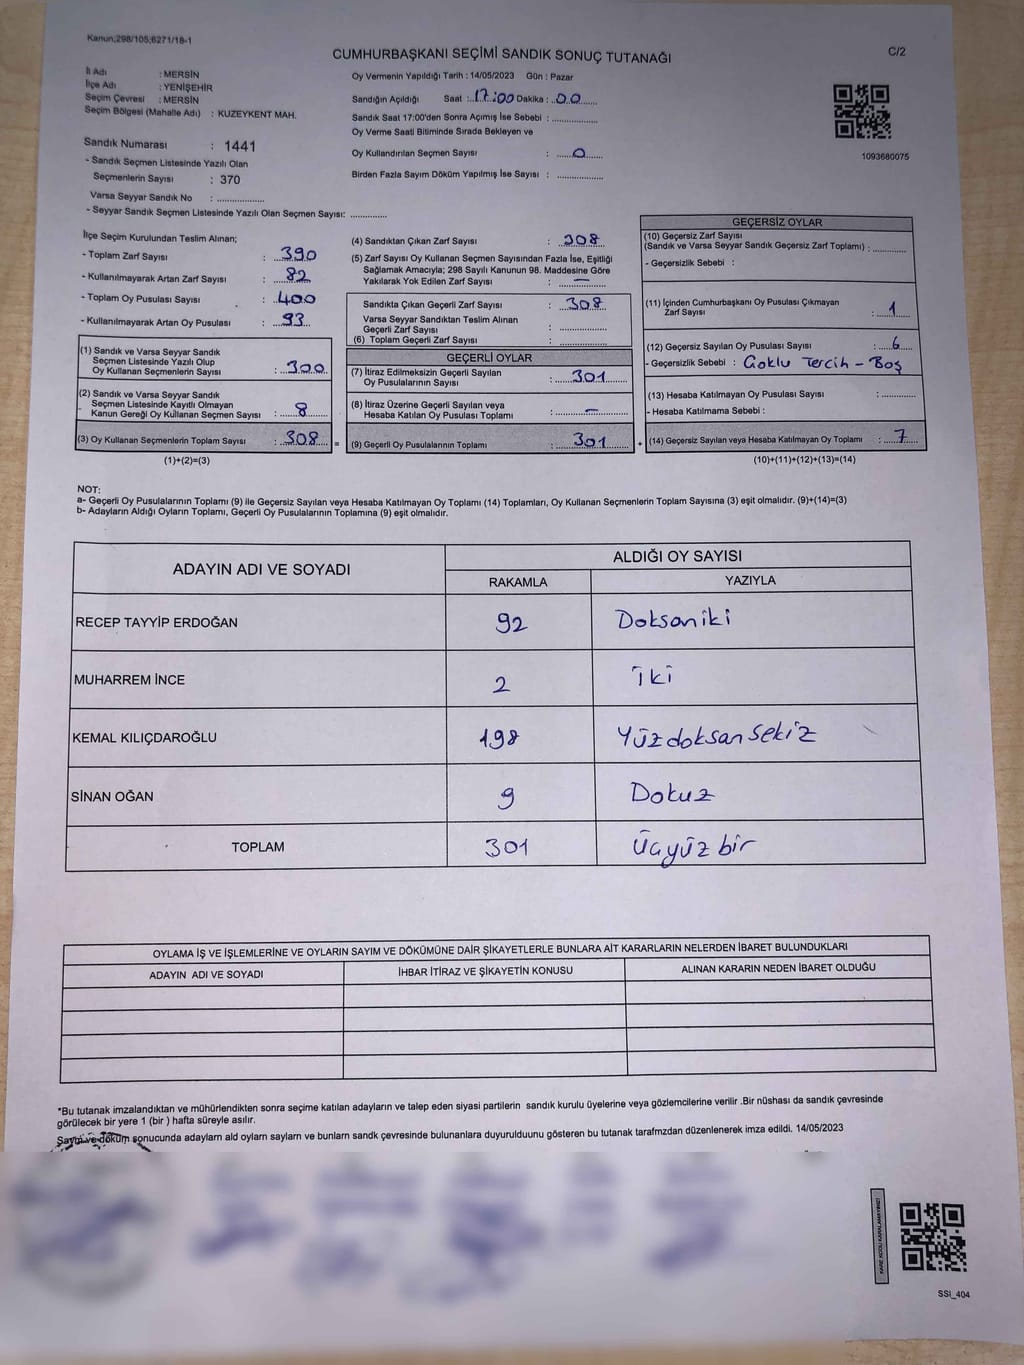 Kanun;298/105;6271/18-1
CUMHURBAŞKANI SEÇİMİ SANDIK SONUÇ TUTANAĞI
C/2
İl Adı : MERSİN
İlçe Adı : YENİŞEHİR
Seçim Çevresi : MERSİN
Seçim Bölgesi (Mahalle Adı) : KUZEYKENT MAH.
Sandık Numarası : 1441
- Sandık Seçmen Listesinde Yazılı Olan
Seçmenlerin Sayısı : 370
Varsa Seyyar Sandık No : ..................
- Seyyar Sandık Seçmen Listesinde Yazılı Olan Seçmen Sayısı: ..............
Oy Vermenin Yapıldığı Tarih : 14/05/2023 Gün : Pazar
Sandığın Açıldığı Saat : 17:00 Dakika : 00
Sandık Saat 17:00'den Sonra Açımış İse Sebebi : ..................
Oy Verme Saati Bitiminde Sırada Bekleyen ve
Oy Kullandırılan Seçmen Sayısı : 0
Birden Fazla Sayım Döküm Yapılmış İse Sayısı : ..................
1093680075
İlçe Seçim Kurulundan Teslim Alınan;
- Toplam Zarf Sayısı : 390
- Kullanılmayarak Artan Zarf Sayısı : 82
- Toplam Oy Pusulası Sayısı : 400
- Kullanılmayarak Artan Oy Pusulası : 93
(1) Sandık ve Varsa Seyyar Sandık
Seçmen Listesinde Yazılı Olup
Oy Kullanan Seçmenlerin Sayısı : 300
(2) Sandık ve Varsa Seyyar Sandık
Seçmen Listesinde Kayıtlı Olmayan
Kanun Gereği Oy Kullanan Seçmen Sayısı : 8
(3) Oy Kullanan Seçmenlerin Toplam Sayısı : 308 =
(1)+(2)=(3)
(4) Sandıktan Çıkan Zarf Sayısı : 308
(5) Zarf Sayısı Oy Kullanan Seçmen Sayısından Fazla İse, Eşitliği
Sağlamak Amacıyla; 298 Sayılı Kanunun 98. Maddesine Göre
Yakılarak Yok Edilen Zarf Sayısı : —
Sandıkta Çıkan Geçerli Zarf Sayısı : 308
Varsa Seyyar Sandıktan Teslim Alınan
Geçerli Zarf Sayısı : ..................
(6) Toplam Geçerli Zarf Sayısı : ..................
GEÇERLİ OYLAR
(7) İtiraz Edilmeksizin Geçerli Sayılan
Oy Pusulalarının Sayısı : 301
(8) İtiraz Üzerine Geçerli Sayılan veya
Hesaba Katılan Oy Pusulası Toplamı : —
(9) Geçerli Oy Pusulalarının Toplamı : 301 +
GEÇERSİZ OYLAR
(10) Geçersiz Zarf Sayısı
(Sandık ve Varsa Seyyar Sandık Geçersiz Zarf Toplamı) : ............
- Geçersizlik Sebebi :
(11) İçinden Cumhurbaşkanı Oy Pusulası Çıkmayan
Zarf Sayısı : 1
(12) Geçersiz Sayılan Oy Pusulası Sayısı : 6
- Geçersizlik Sebebi : Çoklu Tercih - Boş
(13) Hesaba Katılmayan Oy Pusulası Sayısı : ............
- Hesaba Katılmama Sebebi :
(14) Geçersiz Sayılan veya Hesaba Katılmayan Oy Toplamı : 7
(10)+(11)+(12)+(13)=(14)
NOT:
a- Geçerli Oy Pusulalarının Toplamı (9) ile Geçersiz Sayılan veya Hesaba Katılmayan Oy Toplamı (14) Toplamları, Oy Kullanan Seçmenlerin Toplam Sayısına (3) eşit olmalıdır. (9)+(14)=(3)
b- Adayların Aldığı Oyların Toplamı, Geçerli Oy Pusulalarının Toplamına (9) eşit olmalıdır.
ADAYIN ADI VE SOYADI ALDIĞI OY SAYISI
RAKAMLA YAZIYLA
RECEP TAYYİP ERDOĞAN 92 Doksaniki
MUHARREM İNCE 2 iki
KEMAL KILIÇDAROĞLU 198 Yüzdoksan sekiz
SİNAN OĞAN 9 Dokuz
TOPLAM 301 Üçyüz bir
OYLAMA İŞ VE İŞLEMLERİNE VE OYLARIN SAYIM VE DÖKÜMÜNE DAİR ŞİKAYETLERLE BUNLARA AİT KARARLARIN NELERDEN İBARET BULUNDUKLARI
ADAYIN ADI VE SOYADI İHBAR İTİRAZ VE ŞİKAYETİN KONUSU ALINAN KARARIN NEDEN İBARET OLDUĞU
*Bu tutanak imzalandıktan ve mühürlendikten sonra seçime katılan adayların ve talep eden siyasi partilerin sandık kurulu üyelerine veya gözlemcilerine verilir .Bir nüshası da sandık çevresinde
görülecek bir yere 1 (bir ) hafta süreyle asılır.
Sayım ve döküm sonucunda adayların ald oyların sayların ve bunların sandk çevresinde bulunanlara duyurulduunu gösteren bu tutanak tarafmzdan düzenlenerek imza edildi. 14/05/2023
KARE KODU KARALAMAYINIZ!
SSI_404